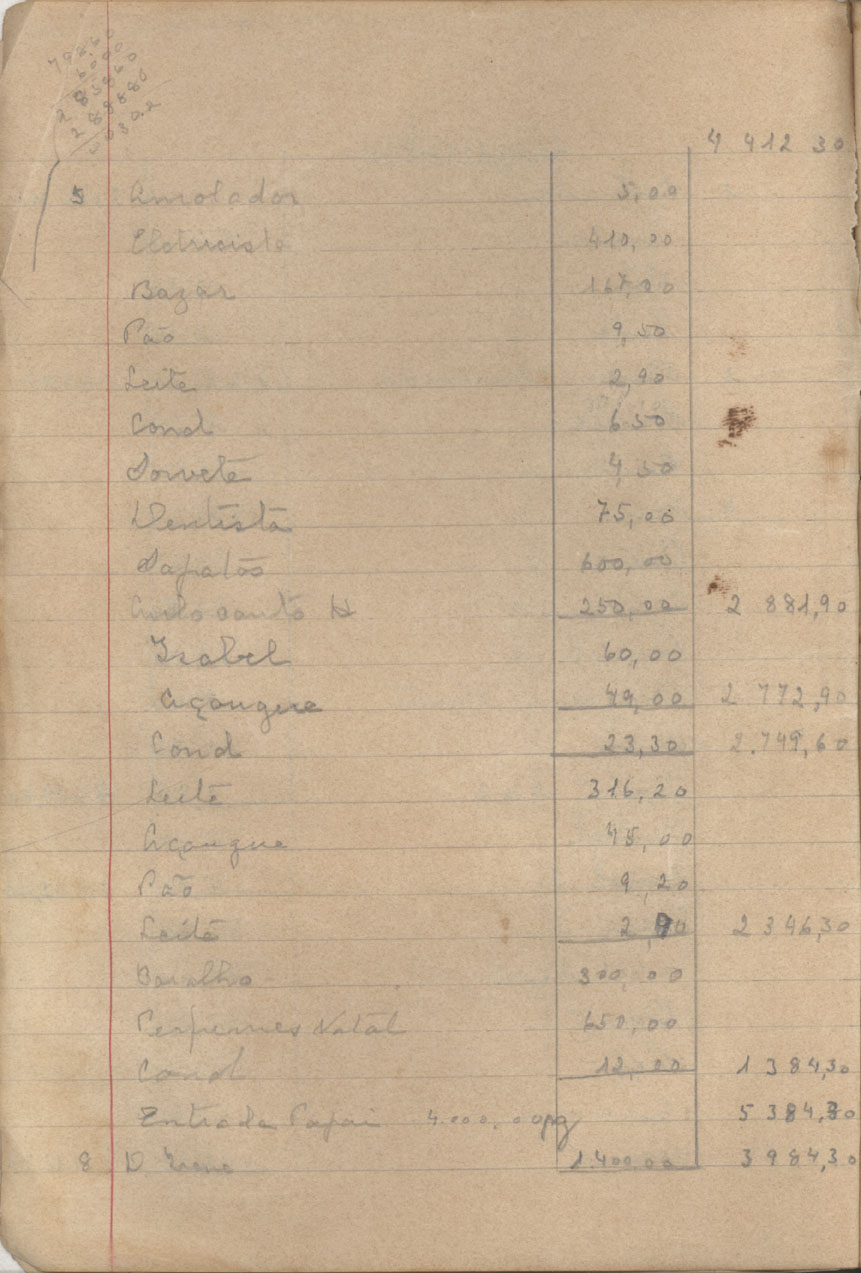 4 412 30
5 Amolador 5,00
Eletricista 410,00
Bazar 167,00
Pão 9,50
Leite 2,90
Cond 6 50
Sorvete 4,50
Dentista 75,00
Sapatos 600,00
H 250,00 2 881,90
Izabel 60,00
Açougue 49,00 2 772,90
Cond 23,30 2.749,60
Leite 316,20
Açougue 45,00
Pão 9,20
Leite 2,90 2 346,30
Baralho 300,00
Perfumes Natal 650,00
Cond 12,00 1 384,30
Entrada Papai 4.000,00 pg 5 384,30
8 D. Irene 1.400.00 3 984,30